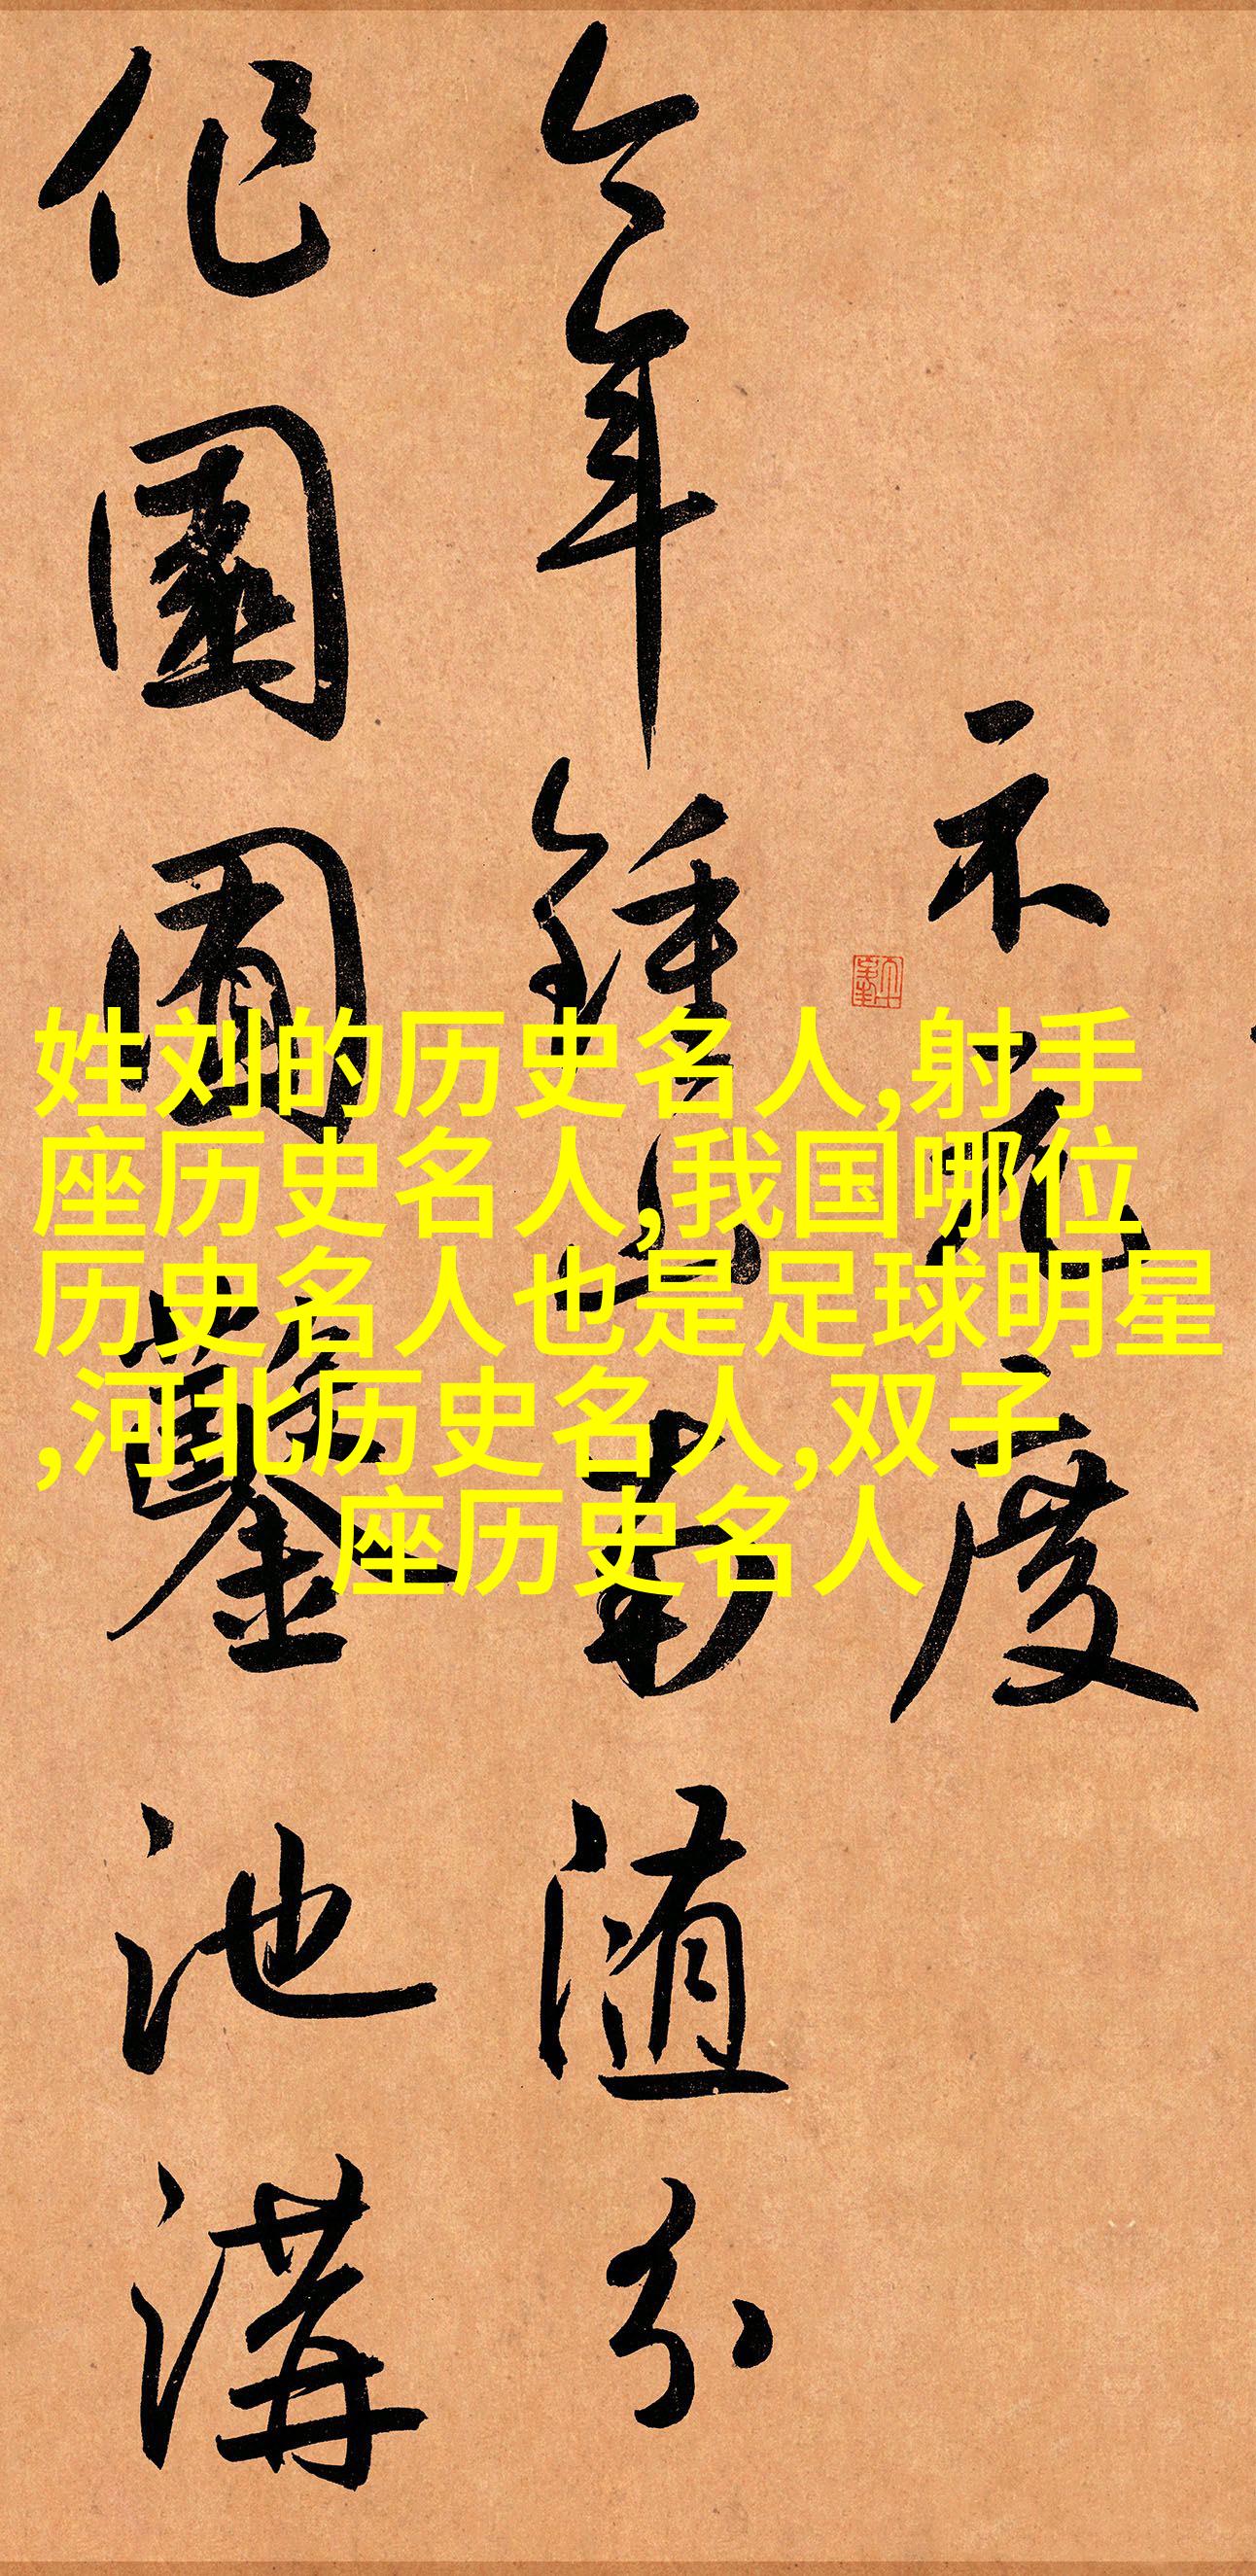 示元度
今年鍾山南随分
作園囿鑿池溝
姓刘的历史名人,射手
座历史名人,我国哪位
历史名人也是足球明星
,河北历史名人,双子
座历史名人